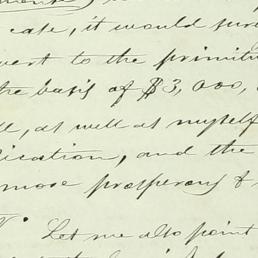 cate, it would fur
vert to the primiti
the basis of $3,000,
as well as myself
lication, and the
more prosperous &
Let me also point